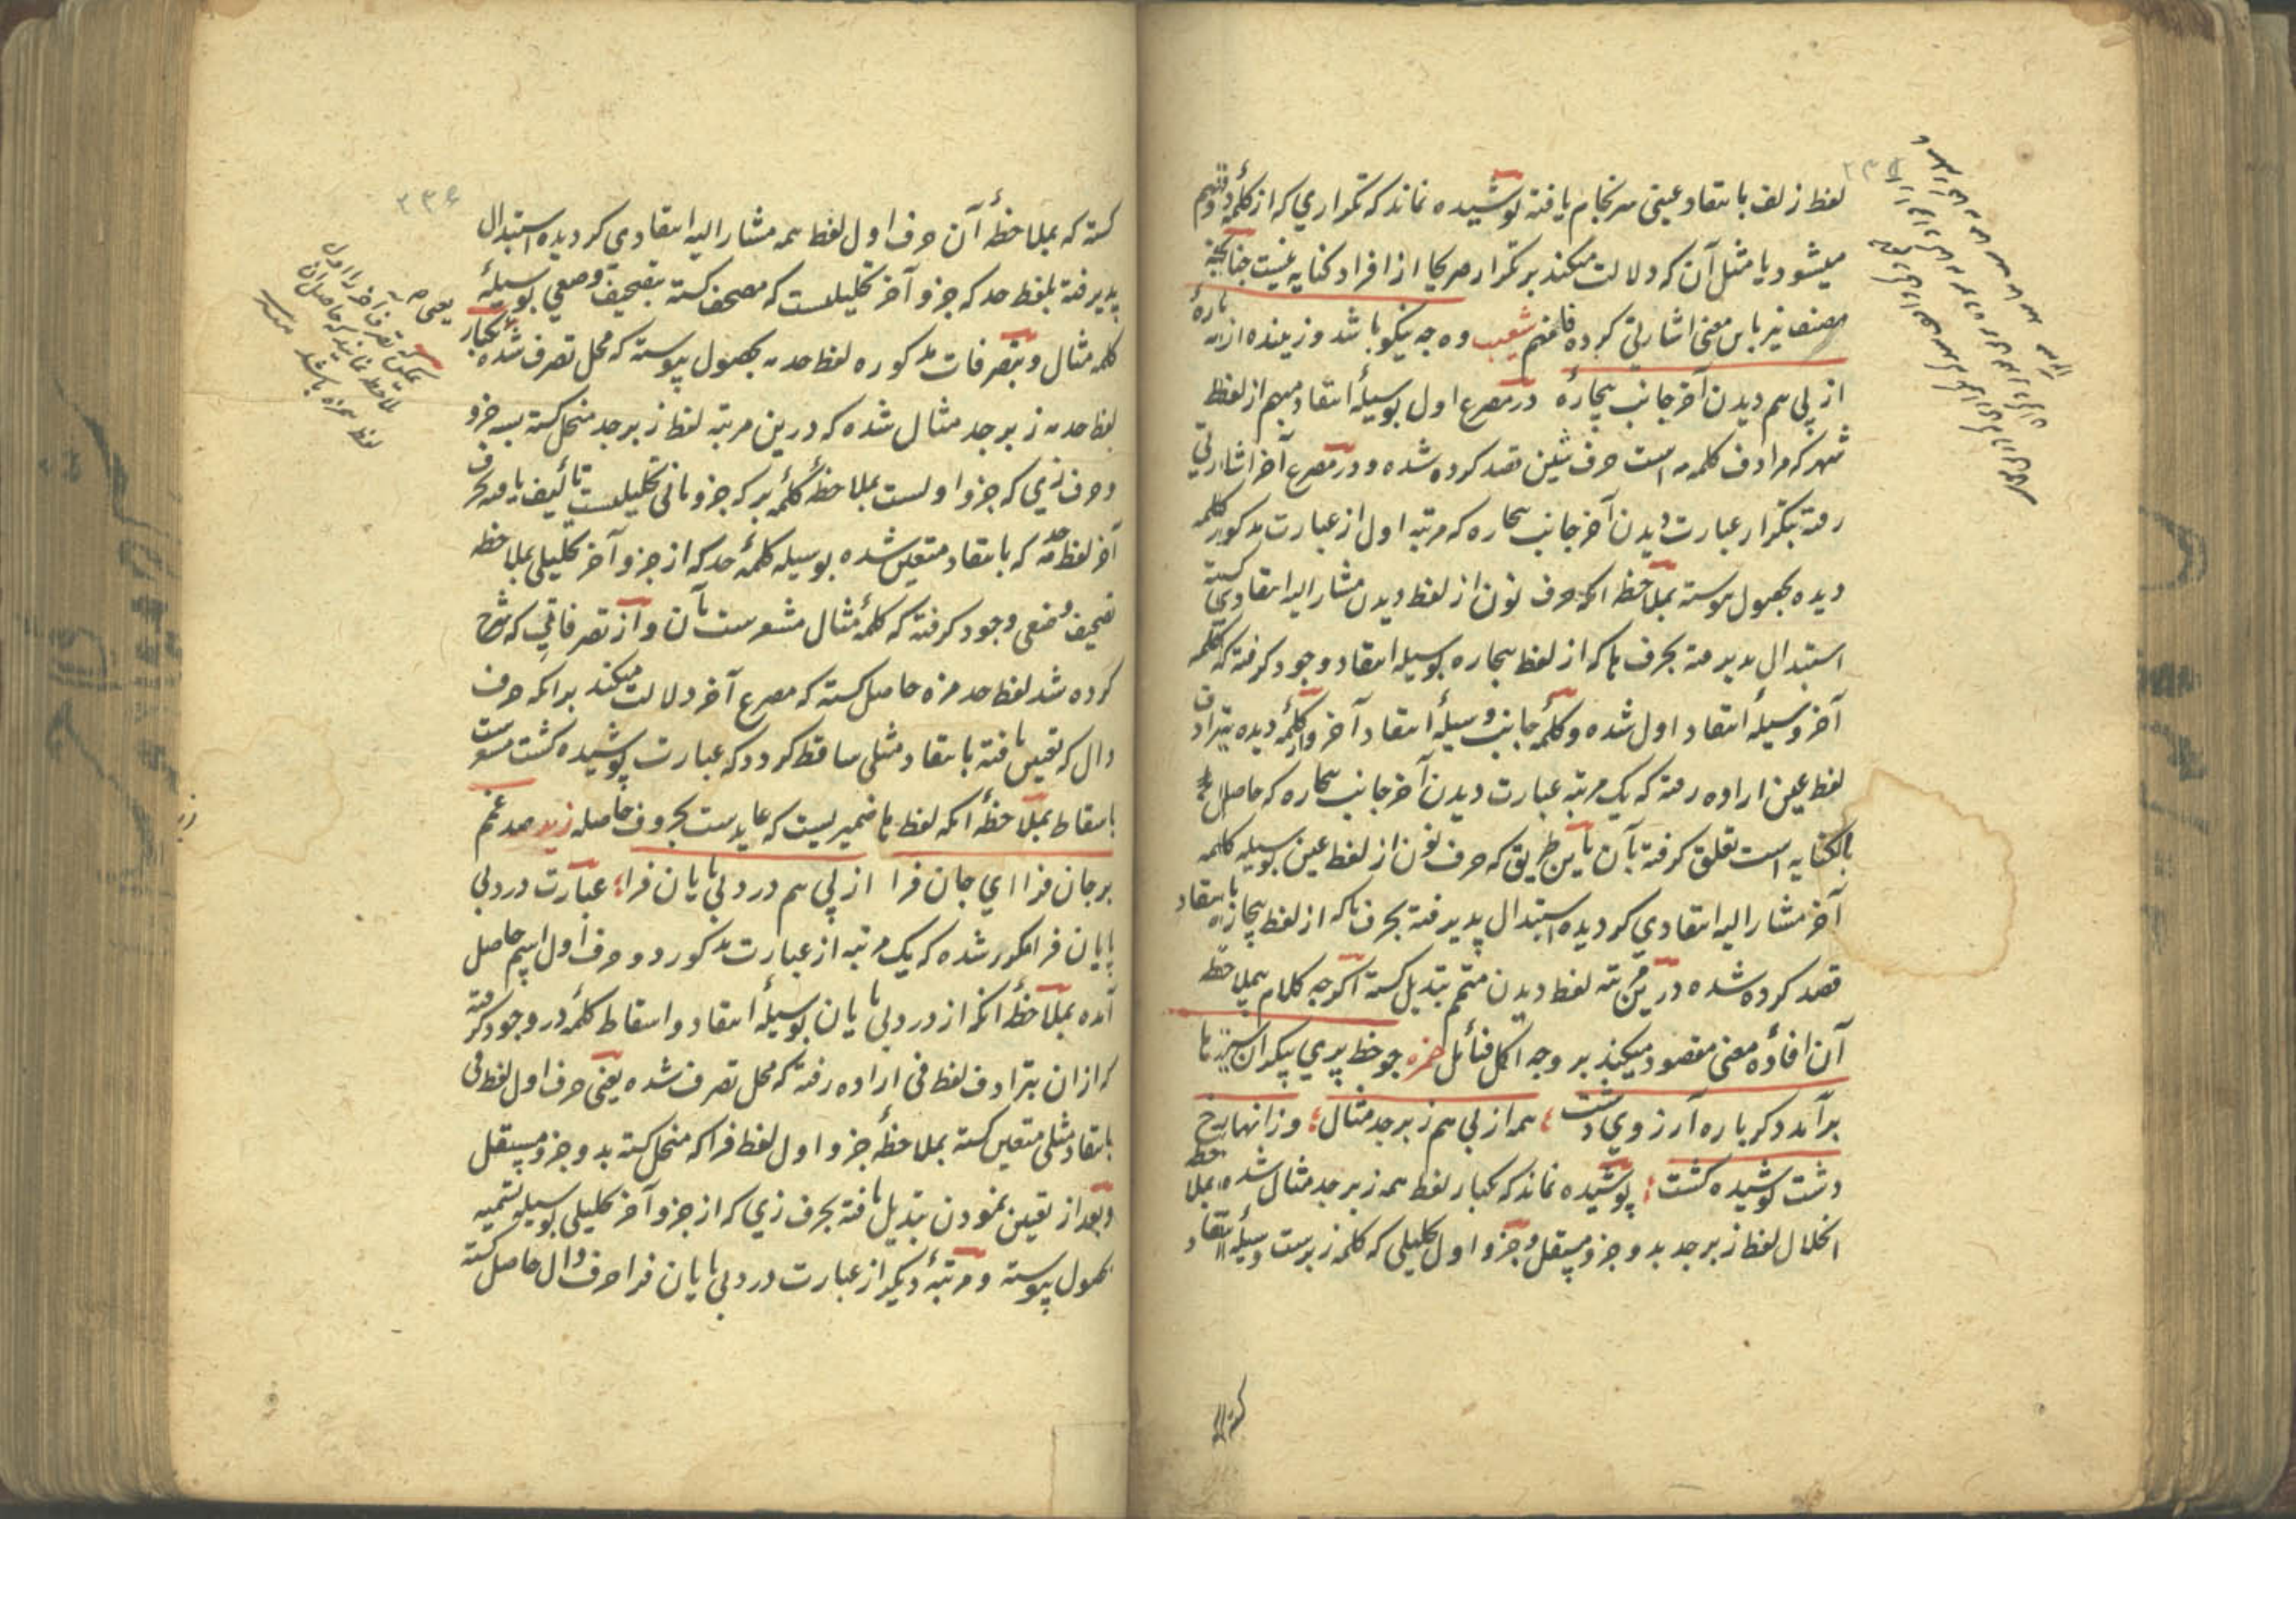 ۲۳۵
لفظ زلف بانتقاد عینی سرنجام یافته پوشیده نماند که تکراری که از کلمه دو فهم
میشود یا مثل آن که دلالت میکند بر تکرار صریحا از افراد کنایه نیست چنانچه
مصنف نیز باین معنی اشارتی کرده فافهم شعیب وه چه نیکو باشد و زیبنده از مه پارهٔ
از پی هم دیدن آخر جانب بیچارهٔ در مصرع اول بوسیلهٔ انتقاد مبهم از لفظ
شهر که مرادف کلمه مه است حرف شین قصد کرده شده و در مصرع آخر اشارتی
رفته بتکرار عبارت دیدن آخر جانب بیچاره که مرتبه اول از عبارت مذکور کلمه
دیده بحصول پیوسته بملاحظه آنکه حرف نون از لفظ دیدن مشار الیه انتقادی کشته
استبدال پذیرفته بحرف ها که از لفظ بیچاره بوسیله انتقاد وجود کرفته که کلمه
آخر وسیلهٔ انتقاد اول شده و کلمهٔ جانب وسیلهٔ انتقاد آخر و از کلمهٔ دیده بترادف
لفظ عین اراده رفته که یک مرتبه عبارت دیدن آخر جانب بیچاره که حاصل
بالکنایه است تعلق کرفته بآن باین طریق که حرف نون از لفظ عین بوسیله کلمه
آخر مشار الیه انتقادی کردیده استبدال پذیرفته بحرف با که از لفظ بیچاره بانتقاد
قصد کرده شده درین مرتبه لفظ دیدن متمم تبدیل کشته اکرچه کلام بیملاحظه
آن افادهٔ معنی مقصود میکند بر وجه اکمل فتأمل حمزه چو خط پری پیکران سبزه با
برآمد دکر باره آرزوی دشت ؛ همه از پی هم زبرجد مثال ؛ وز انها رخ
دشت پوشیده کشت ؛ پوشیده نماند که یکبار لفظ همه زبرجد مثال شده بملاحظه
انحلال لفظ زبرجد بدو جزو مستقل و جزو اول تحلیلی که کلمه زبرست وسیلهٔ انتقاد
۲۳۶
کشته که بملاحظهٔ آن حرف اول لفظ همه مشار الیه انتقادی کردیده استبدال
پذیرفته بلفظ حد که جزو آخر تحلیلیست که مصحف کشته بتصحیف وضعی بوسیلهٔ
کلمه مثال و بتصرفات مذکوره لفظ حدمه بحصول پیوسته که محل تصرف شده یکبار
لفظ حدمه زبرجد مثال شده که درین مرتبه لفظ زبرجد منحل کشته بسه جزو
و حرف زی که جزو اولست بملاحظهٔ کلمهٔ بر که جزو ثانی تحلیلیست تألیف یافته بحرف
آخر لفظ حدمه که بانتقاد متعین شده بوسیله کلمهٔ حد که از جزو آخر تحلیلی بملاحظه
تصحیف وضعی وجود کرفته که کلمهٔ مثال مشعرست بآن و از تصرفاتی که شرح
کرده شد لفظ حدمزه حاصل کشته که مصرع آخر دلالت میکند بر آنکه حرف
دال که تعین یافته بانتقاد مثلی ساقط کردد که عبارت پوشیده کشت مشعرست
باسقاط بملاحظهٔ آنکه لفظ ها ضمیریست که عایدست بحروف حاصله زید صد غم
بر جان فزا ای جان فزا از پی هم درد بی پایان فزا ؛ عبارت درد بی
پایان فزا مکرر شده که یک مرتبه از عبارت مذکور دو حرف اول اسم حاصل
آمده بملاحظهٔ آنکه از درد بی پایان بوسیلهٔ انتقاد و اسقاط کلمهٔ در وجود کرفته
که از آن بترادف لفظ فی اراده رفته که محل تصرف شده یعنی حرف اول لفظ فی
بانتقاد مثلی متعین کشته بملاحظهٔ جزو اول لفظ فزا که منحل کشته بدو جزو مستقل
و بعد از تعین نمودن تبدیل یافته بحرف زی که از جزو آخر تحلیلی بوسیله تسمیه
بحصول پیوسته و مرتبهٔ دیکر از عبارت درد بی پایان فزا حرف دال حاصل کشته